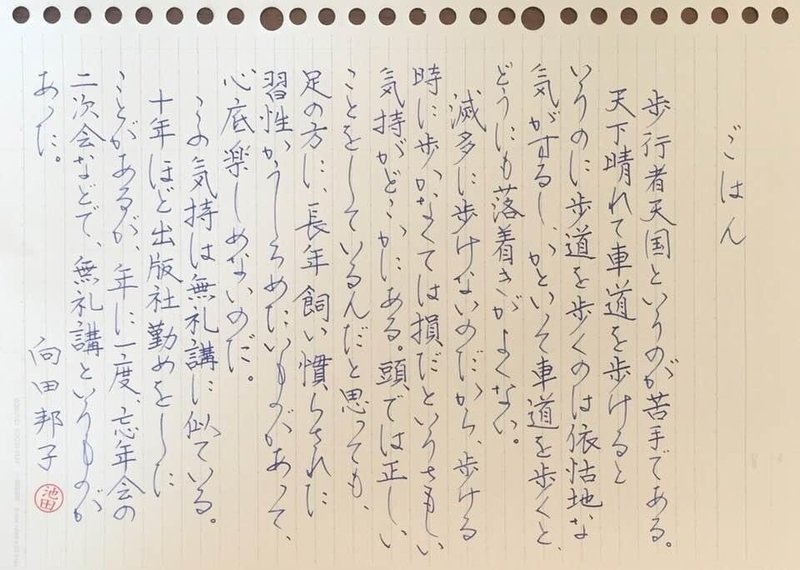 ごはん
歩行者天国というのが苦手である。
天下晴れて車道を歩けると
いうのに歩道を歩くのは依怙地な
気がするし、かといって車道を歩くと、
どうにも落着きがよくない。
滅多に歩けないのだから、歩ける
時に歩かなくては損だというさもしい
気持がどこかにある。頭では正しい
ことをしているんだと思っても、
足の方に、長年飼い慣らされた
習性がうしろめたいものがあって、
心底楽しめないのだ。
この気持は無礼講に似ている。
十年ほど出版社勤めをした
ことがあるが、年に一度、忘年会の
二次会などで、無礼講というものが
あった。
向田邦子
池田